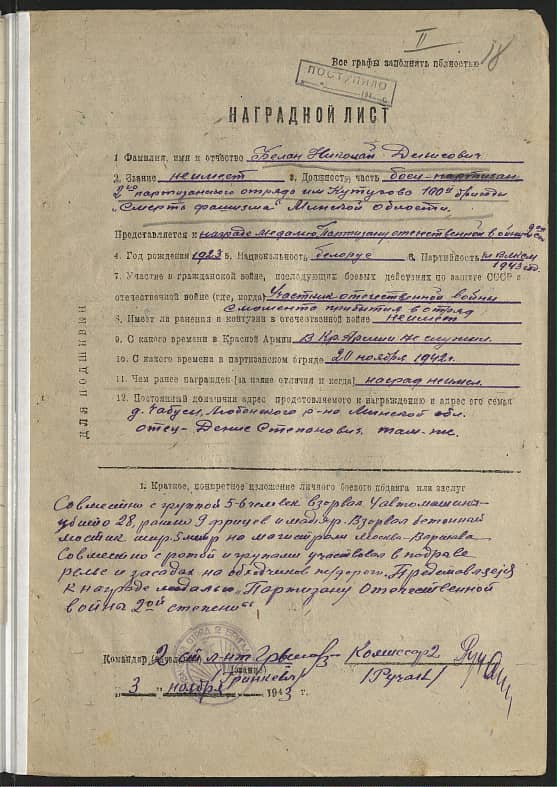 II
18
Все графы заполнять полностью
ПОСТУПИЛО
НАГРАДНОЙ ЛИСТ
1 Фамилия, имя и отчество Белан Николай Денисович
2. Звание неимеет 3. Должность, часть боец-партизан
2го партизанского отряда им Кутузова 100й бригады
"Смерть фашизма" Минской области.
Представляется к награде медалью "Партизану отечественной войны" 2ой ст
4. Год рождения 1923 5. Национальность белорус 6. Партийность ч ВЛКСМ
1943
7. Участие в гражданской войне, последующих боевых действиях по защите СССР и
отечественной войне (где, когда) Участник отечественной войны
с момента прибытия в отряд
8. Имеет ли ранения и контузии в отечественной войне неимеет
9. С какого времени в Красной Армии В Кр Армии не служил
10. С какого времени в партизанском отряде 20 ноября 1942 г.
11. Чем ранее награжден (за какие отличия и когда) наград неимел.
12. Постоянный домашний адрес представляемого к награждению и адрес его семьи
Любанского р-на Минской обл.
отец - Денис Степанович, там-же.
ДЛЯ ПОДШИВКИ
1. Краткое, конкретное изложение личного боевого подвига или заслуг
Совместно с группой 5-6 человек взорвал 4 автомашины
убито 28, ранено 9 фрицев и мадьяр. Взорвал бетонный
мостик шир. 5 метр на магистрали Москва-Варшава
Совместно с ротой и группами участвовал в подрыве
рельс и засадах на обходчиков ж/дороги. Представляется
к награде медалью "Партизану Отечественной
войны 2ой степени"
Командир 2 ст л-нт Комиссар 2
(звание) /Гринкевич/
"3" ноября 1943 г.